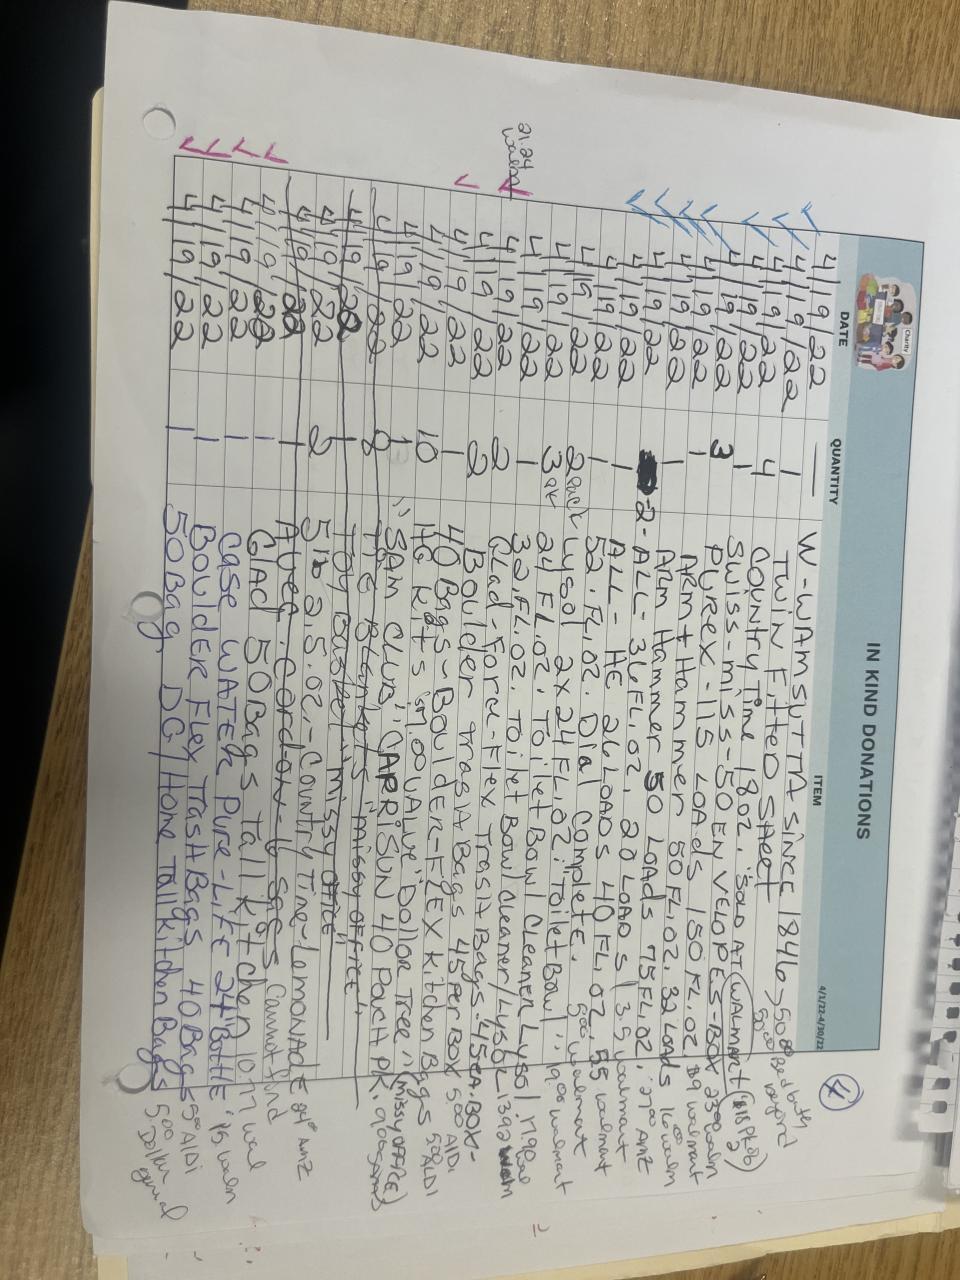 4
IN KIND DONATIONS
4/1/22-4/30/22
Charity
DATE QUANTITY ITEM
4/19/22 — W-WAMSUTTA SINCE 1846 > 50.00 Bed bath beyond
4/19/22 1 Twin Fitted Sheet
4/19/22 4 Country Time 18 oz. "SOLD AT WALMART
4/19/22 1 Swiss-miss-50 ENVELOPES-BOX
4/19/22 3 PUREX-115 LOADS 150 FL.OZ. 23.00 walm
4/19/22 1 ARM + Hammer 50 FL.OZ. 32 Loads \$9 walmart
4/19/22 1 ARM Hammer 50 LOADS 75 FL.OZ. 16.00 walm
4/19/22 2- ALL- 36 FL.OZ. 20 LOADS AMZ
4/19/22 1 ALL-HE 26 LOADS 40 FL.OZ. 3.5 walmart
4/19/22 1 52. FL.OZ. Dial Complete. 55 walmart
4/19/22 2 pack Lysol 2x24 FL.OZ. Toilet Bowl 5.00 walmart
4/19/22 3 24 FL.OZ. Toilet Bowl " 19.00 walmart
4/19/22 1 32. FL.OZ. Toilet Bowl Cleaner Lysol
4/19/22 2 Glad-Force-Flex Trash Bags-45 EA. BOX-
21.24 walm
4/19/22 2 Boulder trash Bags 45 per BOX 5.00 AlDi
4/19/22 1 40 Bags-BoulDER-FLEX Kitchen Bags 5.00 ALDI
4/19/22 10 HG Kits "\$1.00 VALUE" Dollor Tree " (missy OFFICE)
4/19/22 1 "SAM CLUB" CAPRISUN 40 Pouch PK. 9.00 sams
4/19/22 8 THE Blankets "missy OFFICE"
4/19/22 1 TOY Basket "missy OFFICE"
4/19/22 2 5 lb 2.5.oz.-Country Time-Lemonade AMZ
4/19/22 1 Cannot find
4/19/22 1 GLAD 50 Bags Tall Kitchen 10.17 wal
4/19/22 1 Case WATER Pure-LIFE 24 BOTTLE walm
4/19/22 1 BOULDER FLEX TRASH BAGS 40 Bags 5.00 AlDi
4/19/22 1 50 Bag DG/Home Tall Kitchen Bags 5.00 Dollar general